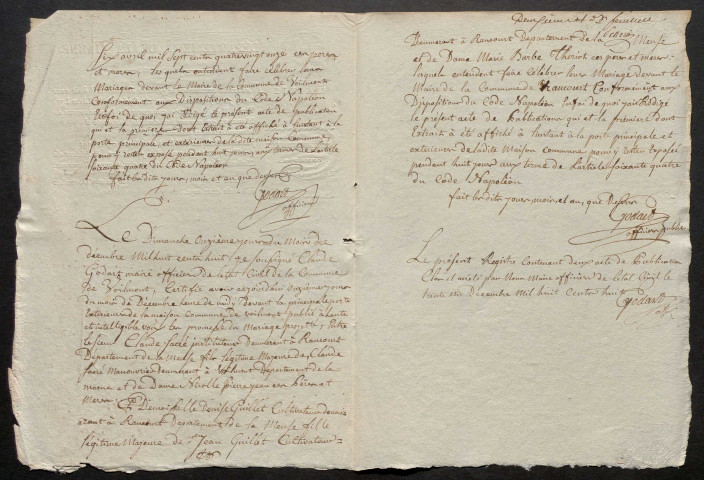 Six avril mil Sept cents quatre vingt onze ces pere
et mere, lesquels entendent faire célébrer leur
Mariage devant le Maire de la Commune de Voilmont
Conformément aux Dispositions du Code Napoléon
En foi de quoi j'ai rédigé le présent acte de publication
qui est la première dont Extrait a été affiché a l'instant à la
porte principale, et exterieure de la dite maison Commune
pour y rester exposé pendant huit jours, aux termes de l'article
soixante quatre du Code Napoléon
fait les dits jour, mois et an que dessus
Godart
officier
Le Dimanche Onzième jour du Mois de
décembre Mil huit cents huit, je soussigné Claude
Godart maire officier de l'état Civil de la Commune
de Voilmont, Certifie avoir ce jourdhui onzième jour
du mois de Décembre heure de midy devant la principale porte
Exterieure de la maison commune de voilmont publié à haute
et intelligible voix les promesse du Mariage projetté; Entre
le sieur Claude faré instituteur demeurant à Rancourt
Département de la Meuse fils légitime Majeure de, Claude
faré Manouvrier demeurant à Département de la
marne et de Dame Nicolle pierre jean ces Pere et
Mere; Et Demoiselle Denise Guillet Cultivateur
à Rancourt Departement de la Meuse fille
légitime Majeure de Sr Jean Guillet Cultivateur
Deuxième et feuillet
Godart
Demeurant à Rancourt Département de la Meuse
et de Dame Marie Barbe Theriot ces pere et mere
lesquels entendent faire Célébrer leur Mariage devant le
Maire de la Commune de Rancourt Conformément aux
Dispositions du Code Napoléon En foi de quoi j'ai rédigé
le présent acte de Publications qui est la première dont
Extrait a été affiché a l'instant à la porte principale et
exterieure de la dite Maison commune pour y rester exposé
pendant huit jours aux terme de l'article soixante quatre
du Code Napoléon
fait les dits jours, mois, et an, que Dessus
Godart
officier Public
Le présent Registre Contenant deux acte de Publication
Clos et arrêté par Nous Maire officier de l'état Civil le
trente un Décembre Mil huit Cents huit Godart